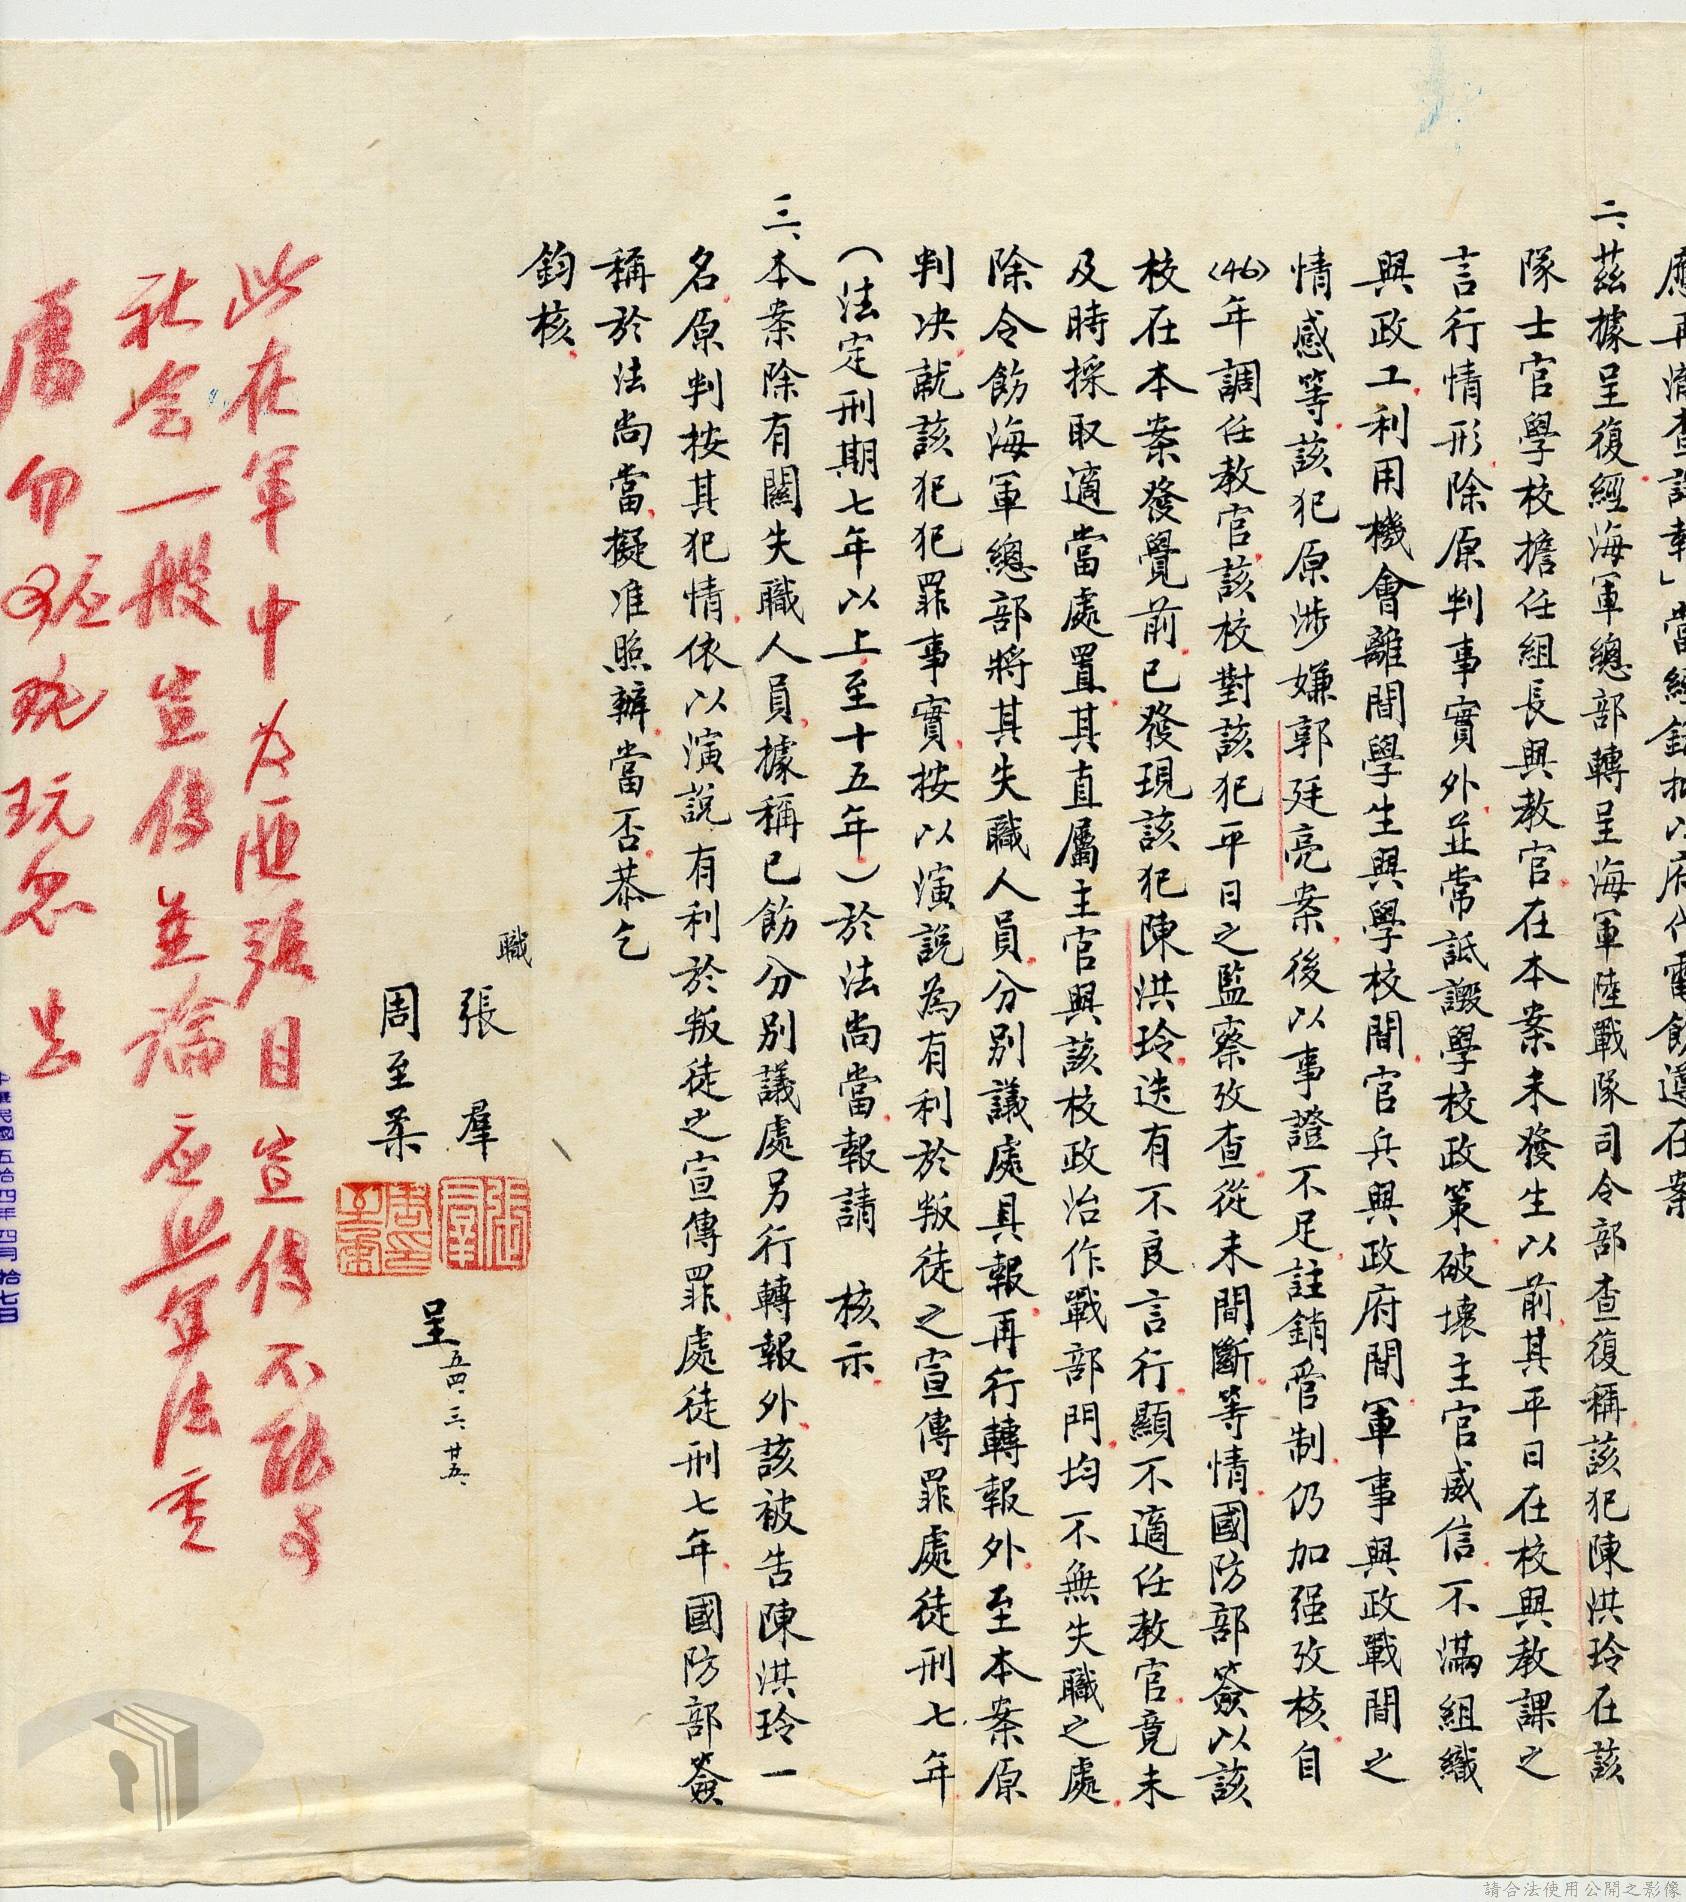 應再澈查詳報」當經錄批以府代電飭遵在案
二、茲據呈復經海軍總部轉呈海軍陸戰隊司令部查復稱該犯陳洪玲在該
隊士官學校擔任組長與教官在本案未發生以前其平日在校與教課之
言行情形除原判事實外並常詆譭學校政策破壞主官威信不滿組織
與政工利用機會離間學生與學校間官兵與政府間軍事與政戰間之
情感等該犯原涉嫌郭廷亮案後以事證不足註銷管制仍加强攷核自
(46)年調任教官該校對該犯平日之監察攷查從未間斷等情國防部簽以該
校在本案發覺前已發現該犯陳洪玲迭有不良言行顯不適任教官竟未
及時採取適當處置其直屬主官與該校政治作戰部門均不無失職之處
除令飭海軍總部將其失職人員分別議處具報再行轉報外至本案原
判决就該犯犯罪事實按以演說為有利於叛徒之宣傳罪處徒刑七年
(法定刑期七年以上至十五年)於法尚當報請 核示
三、本案除有關失職人員據稱已飭分別議處另行轉報外該被告陳洪玲一
名原判按其犯情依以演說有利於叛徒之宣傳罪處徒刑七年國防部簽
稱於法尚當擬准照辦當否恭乞
鈞核
職
張羣
周至柔
呈
五四、三、廿五、
此在軍中為匪張目宣傳不能與
社会一般宣傳並論应照軍法重